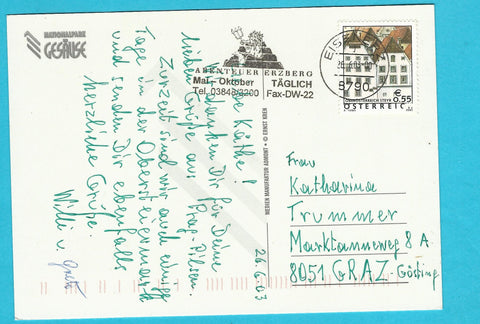 NATIONALPARK
GESÄUSE
ABENTEUER ERZBERG
Mai - Oktober TÄGLICH
Tel. 03848/3200 Fax-DW-22
EISEN
8790
OBERÖSTERREICH STEYR
€ 0,55
ÖSTERREICH
Liebe Käthe!
Wir danken Dir für Deine
lieben Grüße aus Prag-Pilsen.
Zurzeit sind wir auch einige
Tage in der Obersteiermark
und senden Dir ebenfalls
herzliche Grüße.
Willi u.
26.6.03
MEDIEN MANUFAKTUR ADMONT • © ERNST KREN
Frau
Katharina
Trummer
Marktanneweg 8 A
8051 GRAZ-Gösting